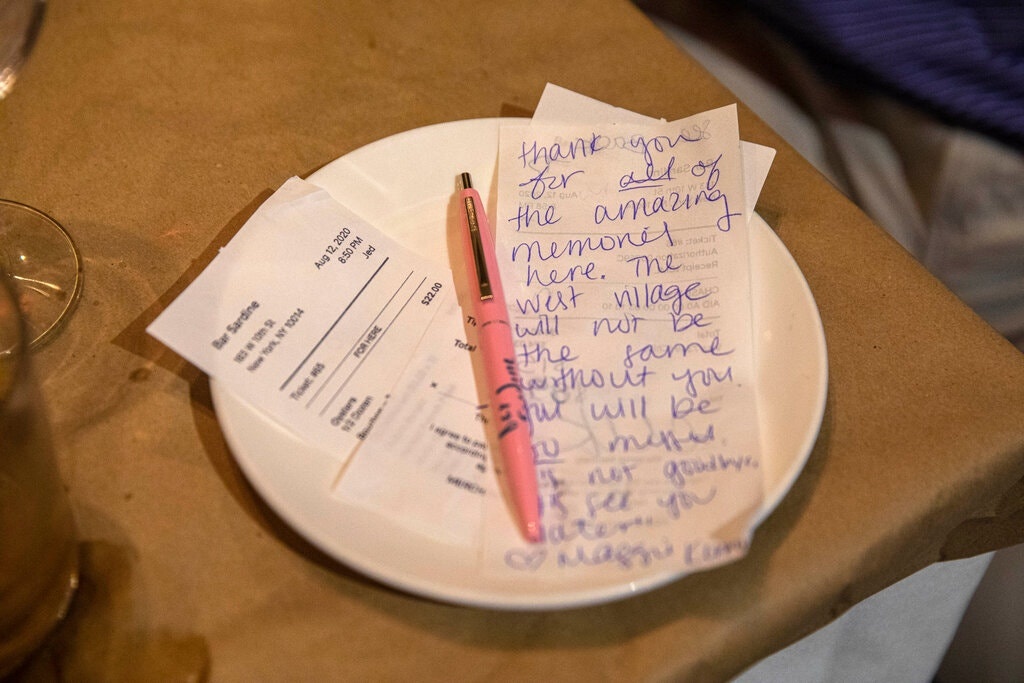 Aug 12, 2020
8:50 PM
Jed
Bar Sardine
183 W 10th St
New York, NY 10014
Ticket: #65
FOR HERE
Oysters
$22.00
1/2 Dozen
Total
x
I agree to
thank you
for all of
the amazing
memories
here. The
west village
will not be
the same
without you.
will be
so missed.
not goodbye,
see you
later"
♡ Maggie